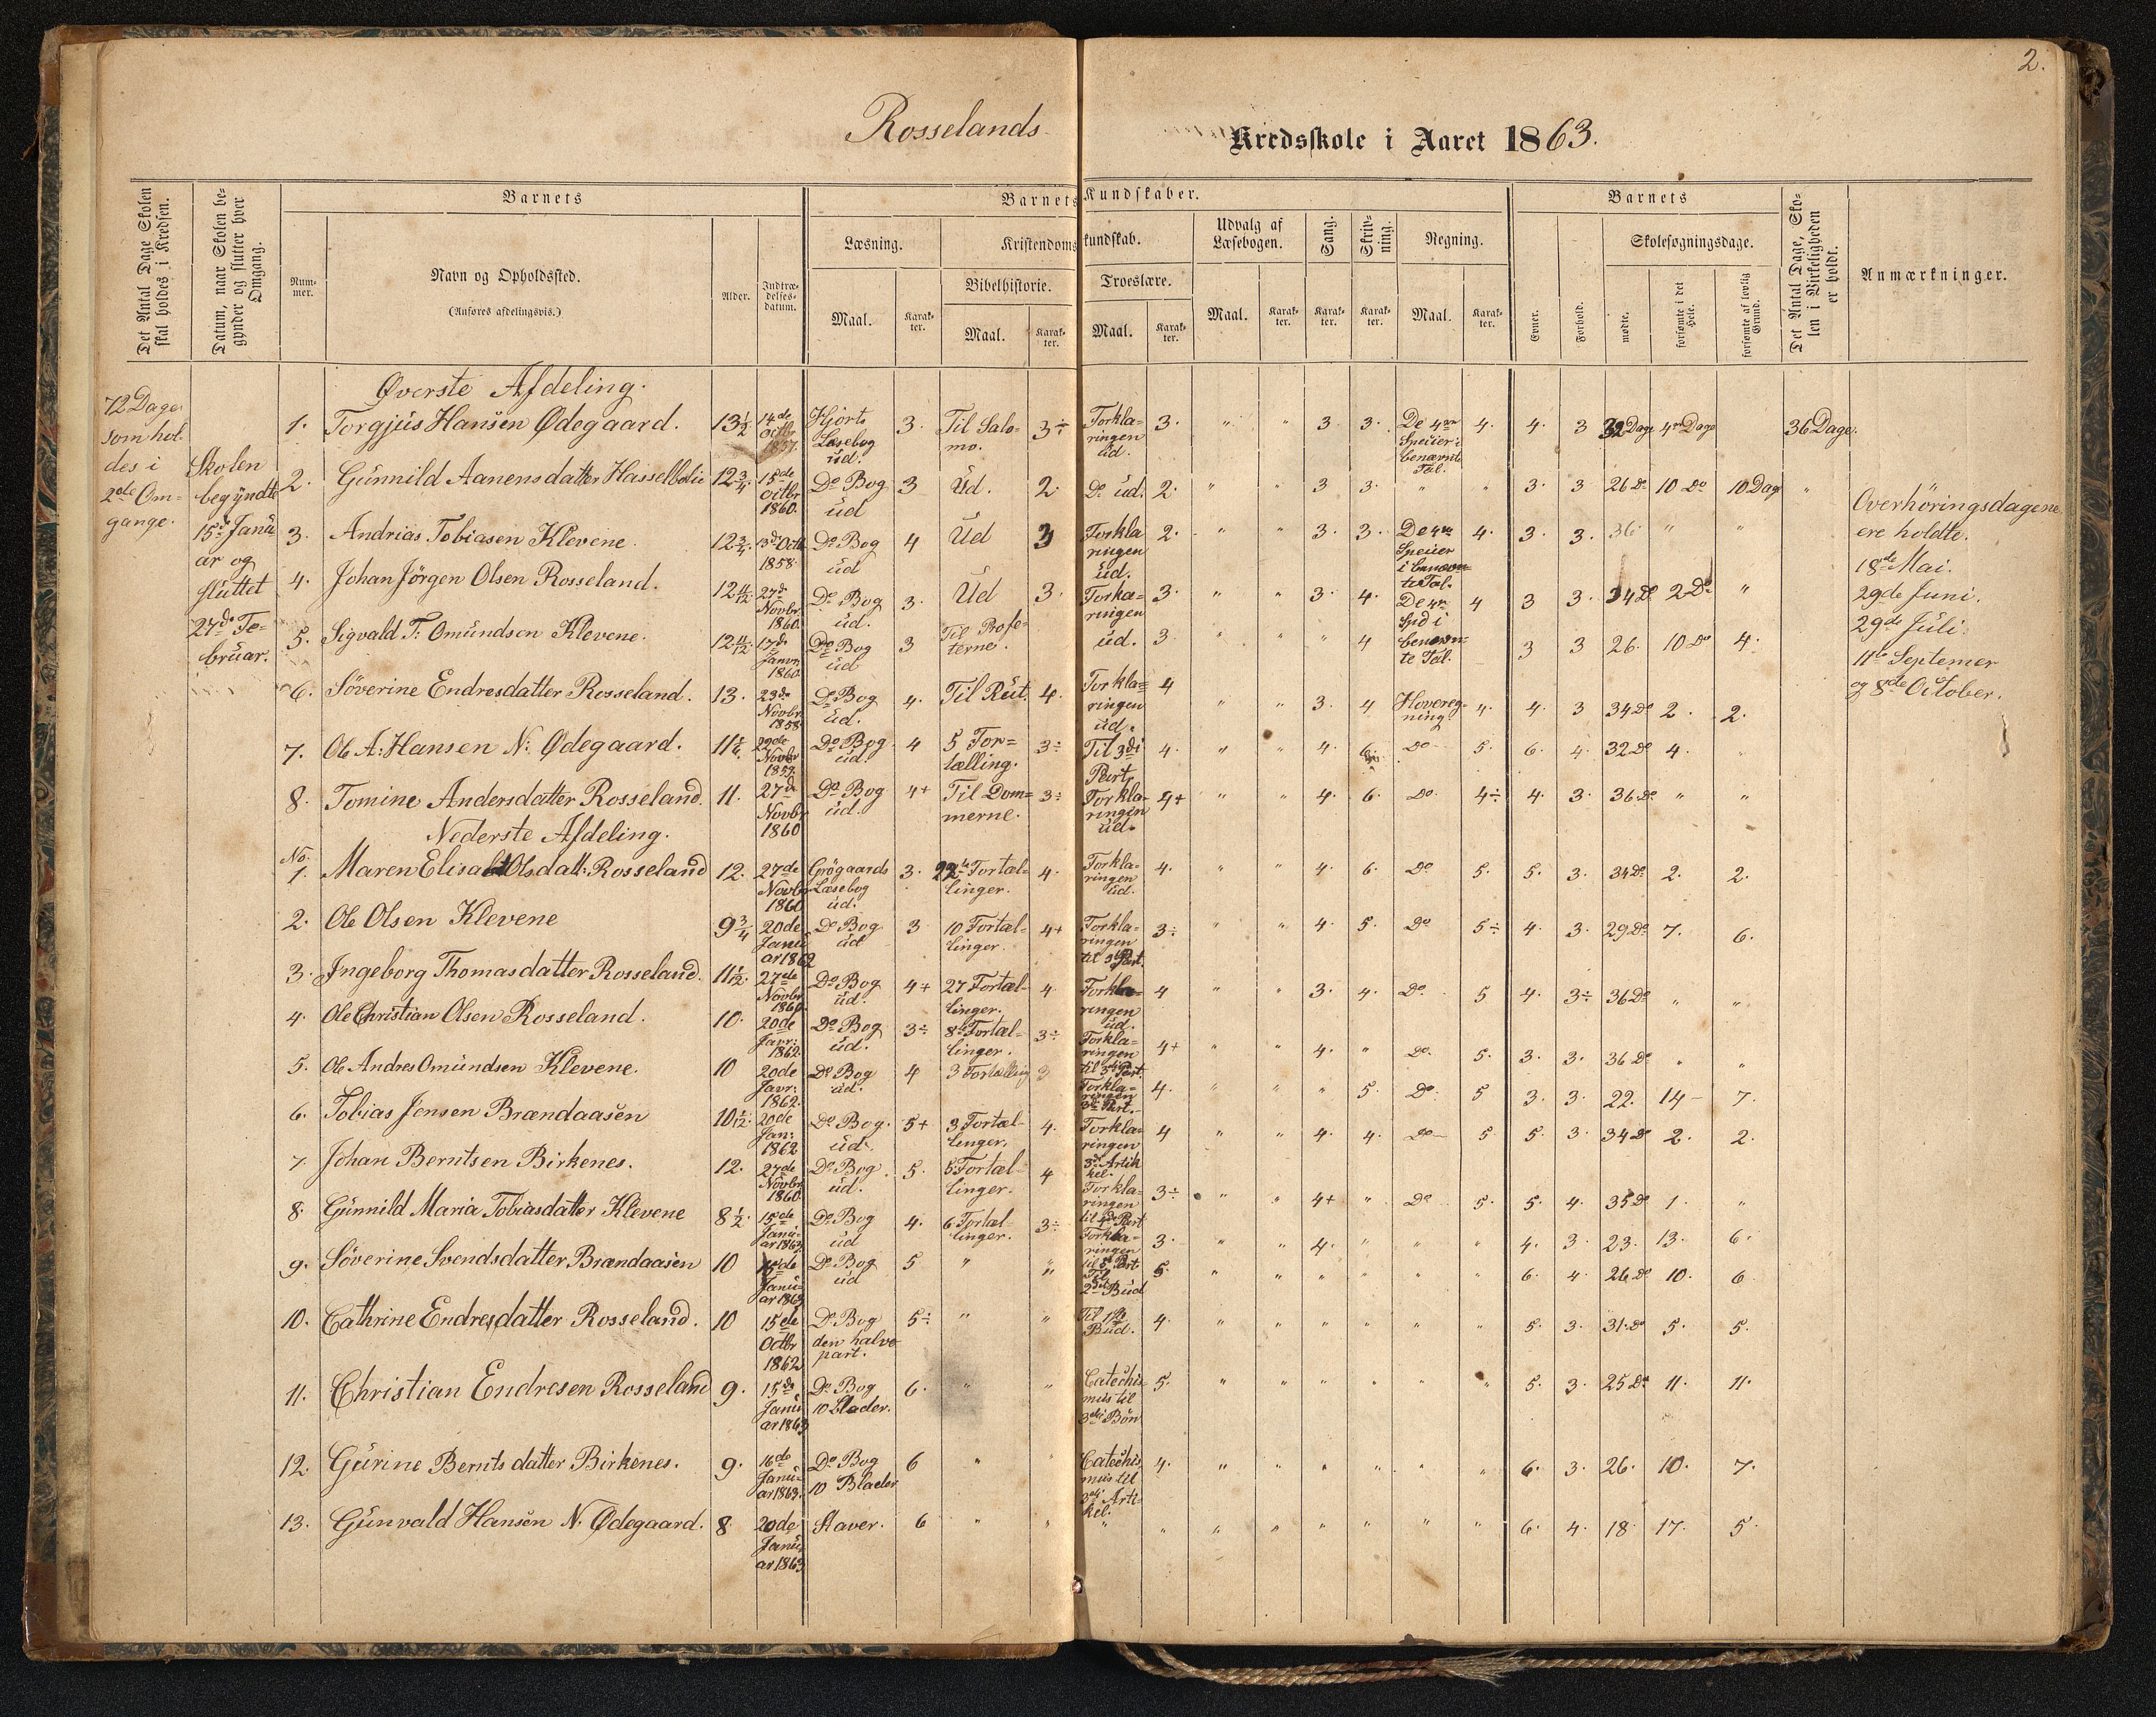 2.
Rosselands Kredsskole i Aaret 1863.
Det Antal Dage Skolen skal holdes i Kredsen.
Datum, naar Skolen begynder og slutter hver Omgang.
Barnets
Nummer.
Navn og Opholdssted.
(Anføres afdelingsvis.)
Alder.
Indtrædelsesdatum.
Barnets Kundskaber.
Læsning.
Maal.
Karakter.
Kristendomskundskab.
Bibelhistorie.
Maal.
Karakter.
Troeslære.
Maal.
Karakter.
Udvalg af Læsebogen.
Maal.
Karakter.
Sang.
Karakter.
Skrivning.
Karakter.
Regning.
Maal.
Karakter.
Barnets
Evner.
Forhold.
Skolesøgningsdage.
mødte.
forsømte i det Hele.
forsømte af lovlig Grund.
Det Antal Dage, Skolen i Virkeligheden er holdt.
Anmærkninger.
72 Dage som holdes i 2de Omgange.
Skolen begyndte 15de Januar og sluttet 27de Februar.
Øverste Afdeling.
1. Torgjus Hansen Ødegaard. 13½ 14de Octbr 1857. Hjorts Læsebog ud. 3. Til Salomo. 3÷ Forklaringen ud. 3. " " 3 3. De 4re Speiser i benævnte Tal. 4. 4. 3 32 Dage 4re Dage 36 Dage.
2. Gunnild Aanensdatter Hasselbolie 12¾ 15de Octbr 1860. Do Bog ud 3 Ud. 2. Do ud. 2. " " 3 3. " " 3. 3 26 Do 10 Do 10 Dag "
3. Andrias Tobiasen Klevene. 12¾. 13de Octb 1858. Do Bog ud 4 Ud 3 Forklaringen ud. 2. " " 3. 3. De 4re Speiser i benævnte Tal. 4. 3. 3. 36 " "
4. Johan Jörgen Olsen Rosseland. 27de Novbr 1860. Do Bog ud. 3. Ud 3. Forklaringen 3. " " 3. 4. De 4re Spd i benævnte Tal. 4 3 3. 34 Do 2 Do "
5. Sigvald T: Omundsen Klevene. 17de Janvr 1860. Do Bog ud 3 Til Profeterne. ud. 3. " " " 4 3 3 26. 10 Do 4.
6. Söverine Endresdatter Rosseland. 13. 23de Novbr 1858. Do Bog ud. 4. Til Rut. 4. Forklaringen ud. 4 " " 3. 4 Hovoregning 4. 4. 3 34 Do 2. 2.
7. Ole A: Hansen N: Ødegaard. 29de Novbr 1859. Do Bog ud. 4 5 Fortælling. 3÷ Til 3di Part. 4. " " 4. 6. Do 5. 6. 4. 32 Do 4. "
8. Tomine Andersdatter Rosseland. 11. 27de Novbr 1860 Do Bog ud. 4+ Til Dommerne. 3÷ Forklaringen ud. 4+ " " 4. 6. Do 4÷ 4. 3. 36 Do " "
Nederste Afdeling.
No. 1. Maren Elisabet Olsdatt: Rosseland 12. 27de Novbr 1860 Grögaards Læsebog ud. 3. 22 Fortællinger. 4. Forklaringen ud. 4. " " 4. 6. Do 5. 5. 3. 34 Do 2. 2.
2. Ole Olsen Klevene 9¾ 20de Januar 1862 Do Bog ud 3 10 Fortællinger. 4+ Forklaringen til 3de Part. 3÷ " " 4. 5. Do 5÷ 4. 3. 29 Do 7. 6.
3. Ingeborg Thomasdatter Rosseland. 11 1/12. 27de Novbr 1860. Do Bog ud. 4+ 27 Fortællinger. 4. Forklaringen ud. 4 " " 3. 4. Do. 5 4. 3÷ 36 Do " "
4. Ole Christian Olsen Rosseland. 10. 20de Janr: 1862. Do Bog ud. 3÷ 8 Fortællinger. 3÷ Forklaringen til 3de Part 4+ " " 4. " Do. 5. 3. 3. 36 Do " "
5. Ole Andres Omundsen Klevene. 10 20de Javr: 1862. Do Bog ud. 4 3 Fortælling 3 Forklaringen 3de Part. 4. " " " 5. Do 5 3. 3. 22. 14 7.
6. Tobias Jensen Brændaasen 20de Jan: 1862 Do Bog ud. 5+ 3 Fortællinger. 4. Forklaringen 3de Artikkel. 4 " " 4. 4. Do 5 5. 3. 34 Do 2. 2.
7. Johan Berntsen Birkenes. 12. 27de Novbr 1860. Do Bog ud. 5. 5 Fortællinger. 4 Forklaringen til 4de Part 3÷ " " 4+ " Do 5. 5. 4. 35 Do 1. "
8. Gunnild Maria Tobiasdatter Klevene 8½ 15de Januar 1863. Do Bog ud 4. 6 Fortællinger. 3÷ Forklaringen til 3de Part 3. " " 4. " " " 4. 3. 23. 13. 6.
9. Söverine Svendsdatter Brændaasen 10 15de Januar 1863 Do Bog ud 5 " " Til 2det Bud 5. " " " " " " 6. 4. 26 Do 10. 6
10. Cathrine Endresdatter Rosseland. 10 15de Octbr 1862 Do Bog den halve part. 5÷ " " Til 1ste Bud. 4. " " " " " " 5. 3. 31 Do 5. 5.
11. Christian Endresen Rosseland 9. 15de Januar 1863 Do Bog 10 Blader. 6. " " Catechismus til 3die Bön 5. " " " " " " 5. 3. 25 Do 11. 11.
12. Gurine Bernts datter Birkenes. 9. 16de Januar 1863. Do Bog 10 Blader 6 " " Catechismus til 3die Artikel. 4. " " " " " " 6. 3. 26. 10. 7.
13. Gunvald Hansen N. Ødegaard. 8 20de Januar 1863 Staver. 6 " " " " " " " " " " 6. 4. 18. 17. 5.
Overhöringsdagene
ere holdte.
18de Mai.
29de Juni.
29de Juli.
11te Septemer
og 8de October.